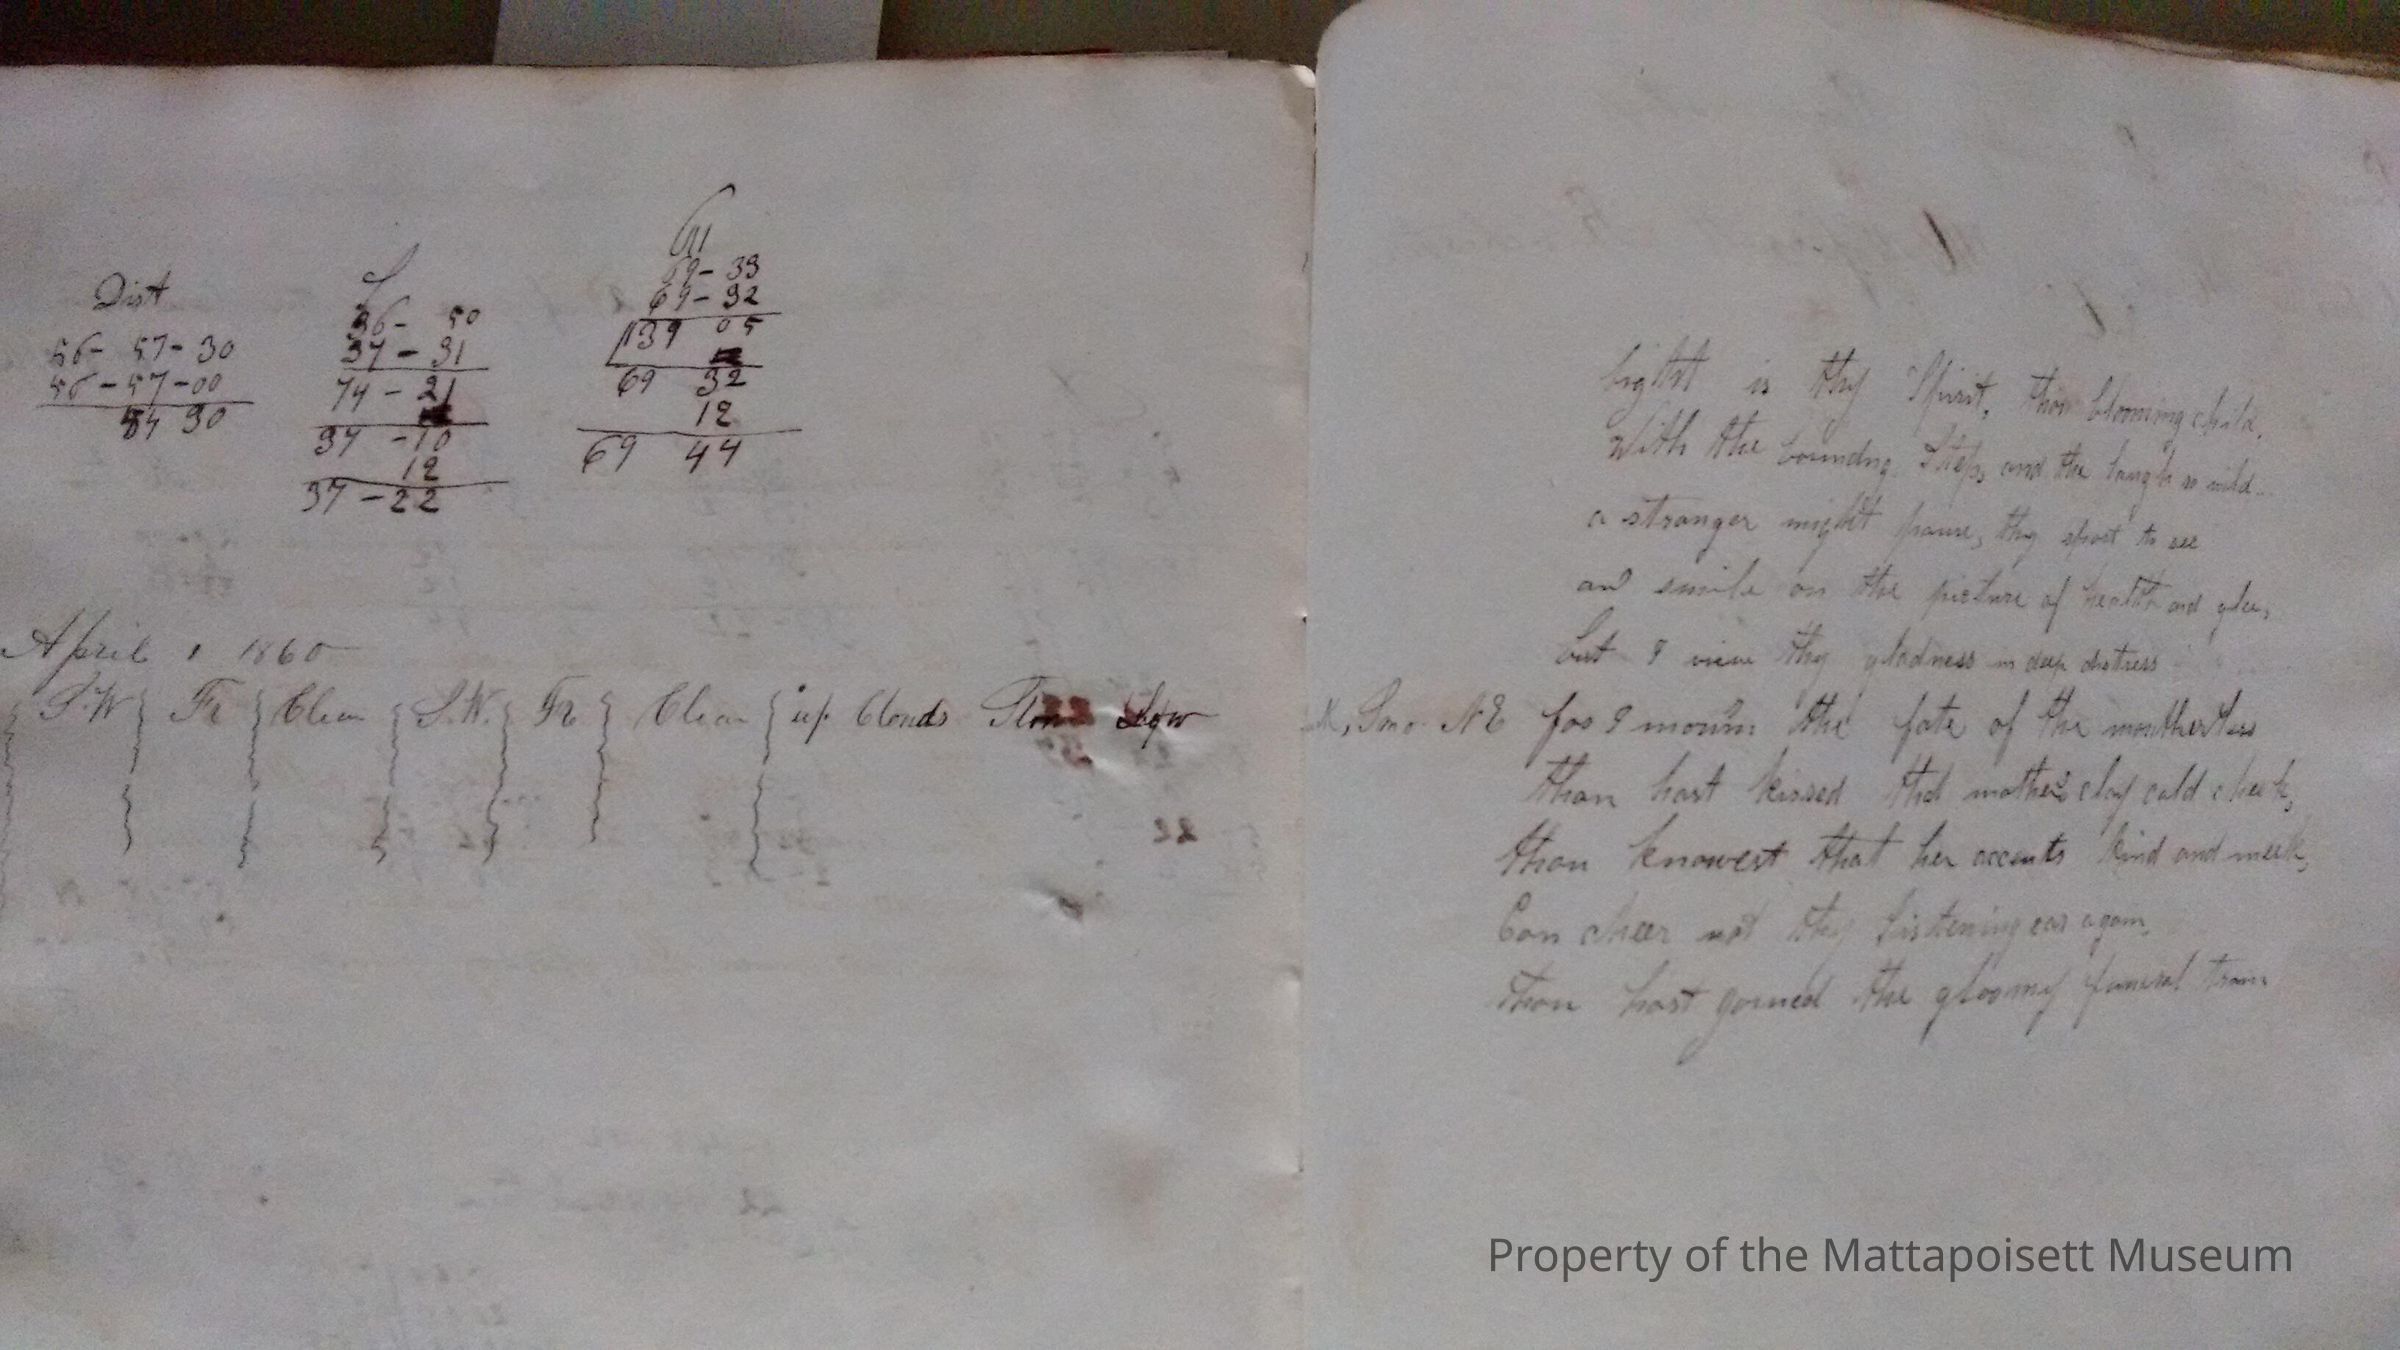 Dist
56- 57- 30
56-57-00
84 30
36- 50
37-31
74-21
37-10
12
37-22
69-33
69-32
139 05
69 32
12
69 44
April 1 1860
S.W Fr Clear S.W. Fr Clear up Clouds
22
N E
bright is thy Spirit, thou blooming child,
With the boundng Steps, and the laugh so wild
a stranger might pause, thy sport to see
and smile on the picture of health and glee,
but I view thy gladness in deep distress
foo I mourn the fate of the moutherless
thou hast kissed thd mothers clay cold cheek,
thou knowest that her accents kind and meek,
Can cheer not thy listening ear again,
thou hast goined the gloomy funeral train
Property of the Mattapoisett Museum